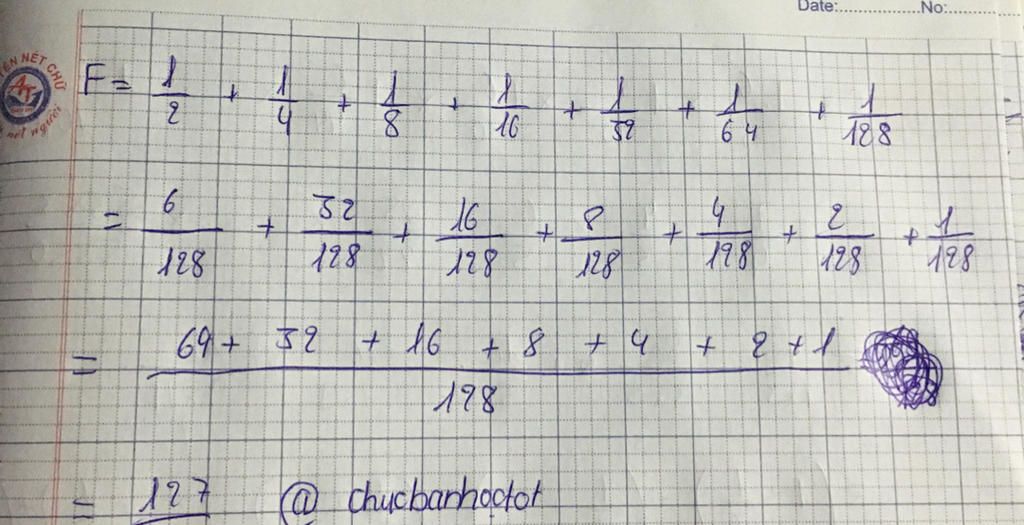 Date:..................No:................
YÊN NÉT CHỮ
AT
nét người
F = 1/2 + 1/4 + 1/8 + 1/16 + 1/32 + 1/64 + 1/128
= 6/128 + 32/128 + 16/128 + 8/128 + 4/128 + 2/128 + 1/128
= 64 + 32 + 16 + 8 + 4 + 2 + 1 / 128
= 127 @ chucbanhoctot